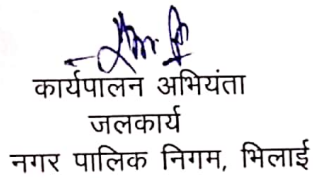 कार्यपालन अभियंता
जलकार्य
नगर पालिक निगम, भिलाई